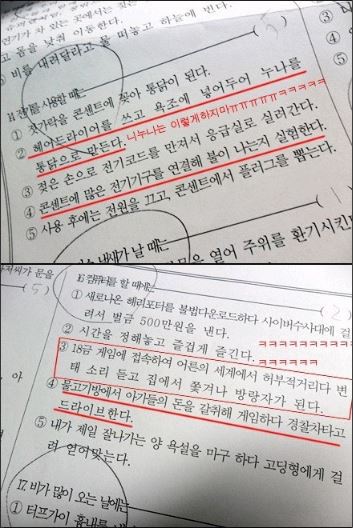 연기가 차 있는 곳에서는
고 몸을 낮춰 이동한다.
⑤ 비를 내려달라고 물 떠놓고 하늘에 빈다.
전기를 사용할 때는
① 젓가락을 콘센트에 꽂아 통닭이 된다.
② 헤어드라이어를 쓰고 욕조에 넣어두어 누나를
통닭으로 만든다. 니누나는 이렇게하지마ㅠㅠㅠㅠㅠㅋㅋㅋㅋㅋ
③ 젖은 손으로 전기코드를 만져서 응급실로 실려간다.
④ 콘센트에 많은 전기기구를 연결해 불이 나는지 실험한다.
⑤ 사용 후에는 전원을 끄고, 콘센트에서 플러그를 뽑는다.
냄새가 날 때는
문을 열어 주위를 환기시킨
( 5 )
16 컴퓨터를 할 때에는
( 2 )
① 새로나온 해리포터를 불법다운로드하다 사이버수사대에 걸
려서 벌금 500만원을 낸다.
② 시간을 정해놓고 즐겁게 즐긴다. ㅋㅋㅋㅋㅋㅋㅋㅋㅋ
③ 18금 게임에 접속하여 어른의 세계에서 허부적거리다 변
태 소리 듣고 집에서 쫓겨나 방랑자가 된다. ㅋㅋㅋㅋㅋㅋ
④ 물고기방에서 아가들의 돈을 갈취해 게임하다 경찰차타고
드라이브한다.
⑤ 내가 제일 잘나가는 양 욕설을 마구 하다 고딩형에게 걸
려 얻어맞는다.
17 비가 많이 오는 날에는
① 터프가이 흉내를